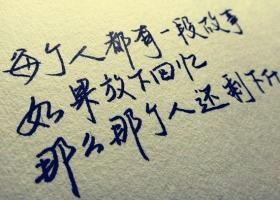 每个人都有一段故事
如果放下回忆
那么那个人还剩下